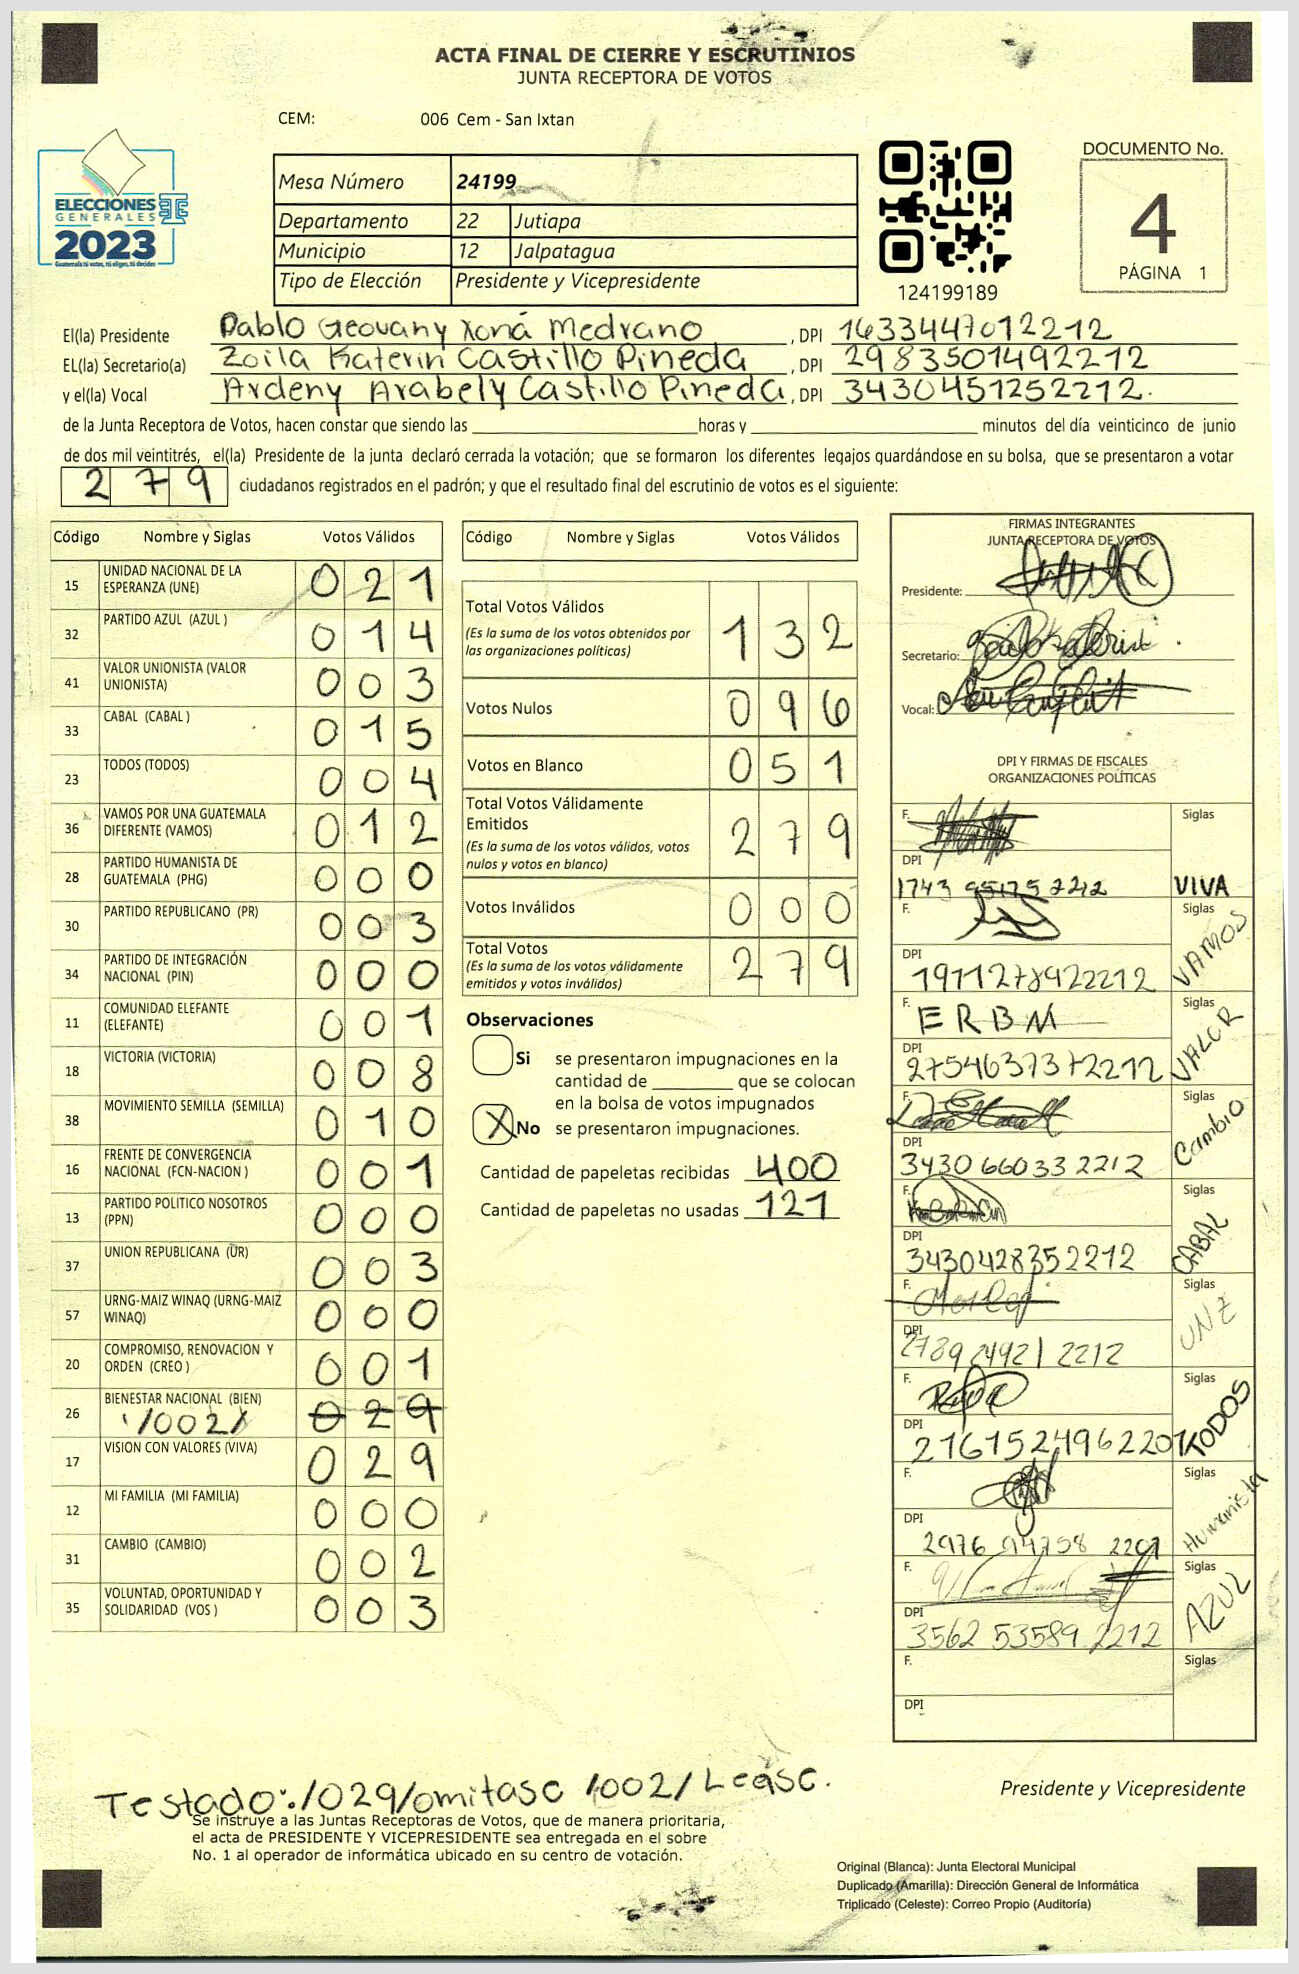 ACTA FINAL DE CIERRE Y ESCRUTINIOS
JUNTA RECEPTORA DE VOTOS
CEM: 006 Cem - San Ixtan
ELECCIONES
GENERALES
2023
Guatemala tú votas, tú eliges, tú decides
Mesa Número 24199
Departamento 22 Jutiapa
Municipio 12 Jalpatagua
Tipo de Elección Presidente y Vicepresidente
124199189
DOCUMENTO No.
4
PÁGINA 1
El(la) Presidente Pablo Geovany Xoná Medrano, DPI 1633447012212
EL(la) Secretario(a) Zoila Katerin Castillo Pineda, DPI 2983501492212
y el(la) Vocal Ardeny Arabely Castillo Pineda, DPI 3430451252212.
de la Junta Receptora de Votos, hacen constar que siendo las horas y minutos del día veinticinco de junio
de dos mil veintitrés, el(la) Presidente de la junta declaró cerrada la votación; que se formaron los diferentes legajos quardándose en su bolsa, que se presentaron a votar
279 ciudadanos registrados en el padrón; y que el resultado final del escrutinio de votos es el siguiente:
Código Nombre y Siglas Votos Válidos
15 UNIDAD NACIONAL DE LA ESPERANZA (UNE) 021
32 PARTIDO AZUL (AZUL ) 014
41 VALOR UNIONISTA (VALOR UNIONISTA) 003
33 CABAL (CABAL ) 015
23 TODOS (TODOS) 004
36 VAMOS POR UNA GUATEMALA DIFERENTE (VAMOS) 012
28 PARTIDO HUMANISTA DE GUATEMALA (PHG) 000
30 PARTIDO REPUBLICANO (PR) 003
34 PARTIDO DE INTEGRACIÓN NACIONAL (PIN) 000
11 COMUNIDAD ELEFANTE (ELEFANTE) 001
18 VICTORIA (VICTORIA) 008
38 MOVIMIENTO SEMILLA (SEMILLA) 010
16 FRENTE DE CONVERGENCIA NACIONAL (FCN-NACION ) 001
13 PARTIDO POLITICO NOSOTROS (PPN) 000
37 UNION REPUBLICANA (UR) 003
57 URNG-MAIZ WINAQ (URNG-MAIZ WINAQ) 000
20 COMPROMISO, RENOVACION Y ORDEN (CREO ) 001
26 BIENESTAR NACIONAL (BIEN) /002/ 029
17 VISION CON VALORES (VIVA) 029
12 MI FAMILIA (MI FAMILIA) 000
31 CAMBIO (CAMBIO) 002
35 VOLUNTAD, OPORTUNIDAD Y SOLIDARIDAD (VOS ) 003
Código Nombre y Siglas Votos Válidos
Total Votos Válidos 132
(Es la suma de los votos obtenidos por
las organizaciones politicas)
Votos Nulos 096
Votos en Blanco 051
Total Votos Válidamente
Emitidos 279
(Es la suma de los votos válidos, votos
nulos y votos en blanco)
Votos Inválidos 000
Total Votos 279
(Es la suma de los votos válidamente
emitidos y votos inválidos)
Observaciones
Si se presentaron impugnaciones en la
cantidad de que se colocan
en la bolsa de votos impugnados
X No se presentaron impugnaciones.
Cantidad de papeletas recibidas 400
Cantidad de papeletas no usadas 121
FIRMAS INTEGRANTES
JUNTA RECEPTORA DE VOTOS
Presidente:
Secretario:
Vocal:
DPI Y FIRMAS DE FISCALES
ORGANIZACIONES POLÍTICAS
F. Siglas
DPI 1743 95175 2212 VIVA
F. Siglas
DPI 1911278922212 VAMOS
F. ERBM Siglas
DPI 2754637372212 VALOR
F. Siglas
DPI 3430 66033 2212 Cambio
F. Siglas
DPI 3430428352212 CABAL
F. Siglas
DPI 2789 24921 2212 UNE
F. Siglas
DPI 2161524962201 TODOS
F. Siglas
DPI 2976 94758 2201 Humanista
F. Siglas
DPI 3562 53589 2212 AZUL
F. Siglas
DPI
Testado: /029/omitase /002/ Lease.
Presidente y Vicepresidente
Se instruye a las Juntas Receptoras de Votos, que de manera prioritaria,
el acta de PRESIDENTE Y VICEPRESIDENTE sea entregada en el sobre
No. 1 al operador de informática ubicado en su centro de votación.
Original (Blanca): Junta Electoral Municipal
Duplicado (Amarilla): Dirección General de Informática
Triplicado (Celeste): Correo Propio (Auditoría)